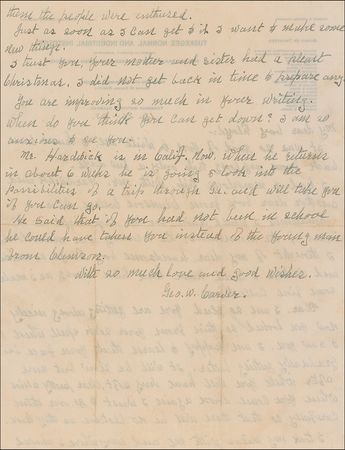 them the people were enthused.
Just as soon as I can get to it I want to make some
new things.
I trust you, your mother and sister had a pleasant
Christmas. I did not get back in time to prepare any.
You are improving so much in your writing.
When do you think you can get down? I am so
anxious to see you.
Mr. Hardwick is in Calif. now. When he returns
in about 6 weeks he is going to look into the
possibilities of a trip through Ga. and will take you
if you can go.
He said that if you had not been in school
he could have taken you instead of the young man
from Clemson.
With so much love and good wishes.
Geo. W. Carver.